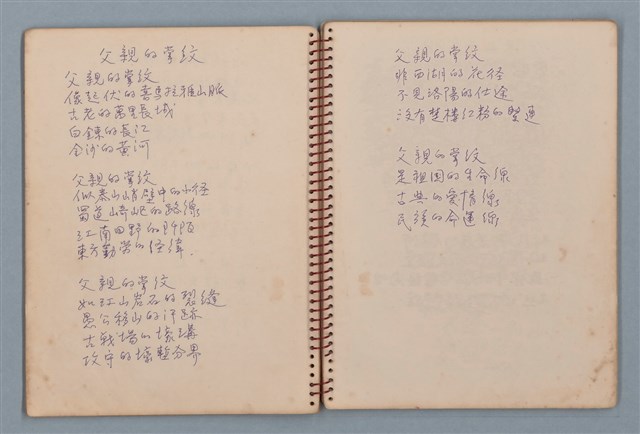 父親的掌紋
父親的掌紋
像起伏的喜馬拉雅山脈
古老的萬里長城
白鍊的長江
金沙的黃河
父親的掌紋
似泰山峭壁中的小徑
蜀道崎岖的路線
江南田野的阡陌
東方勤勞的經緯
父親的掌紋
如江山岩石的裂縫
愚公移山的汗跡
古戰場的壕溝
攻守的壕塹分界
父親的掌紋
非西湖的花径
不見洛陽的仕途
沒有楚樓红粉的
父親的掌紋
是祖国的生命線
古典的愛情線
民族的命運線